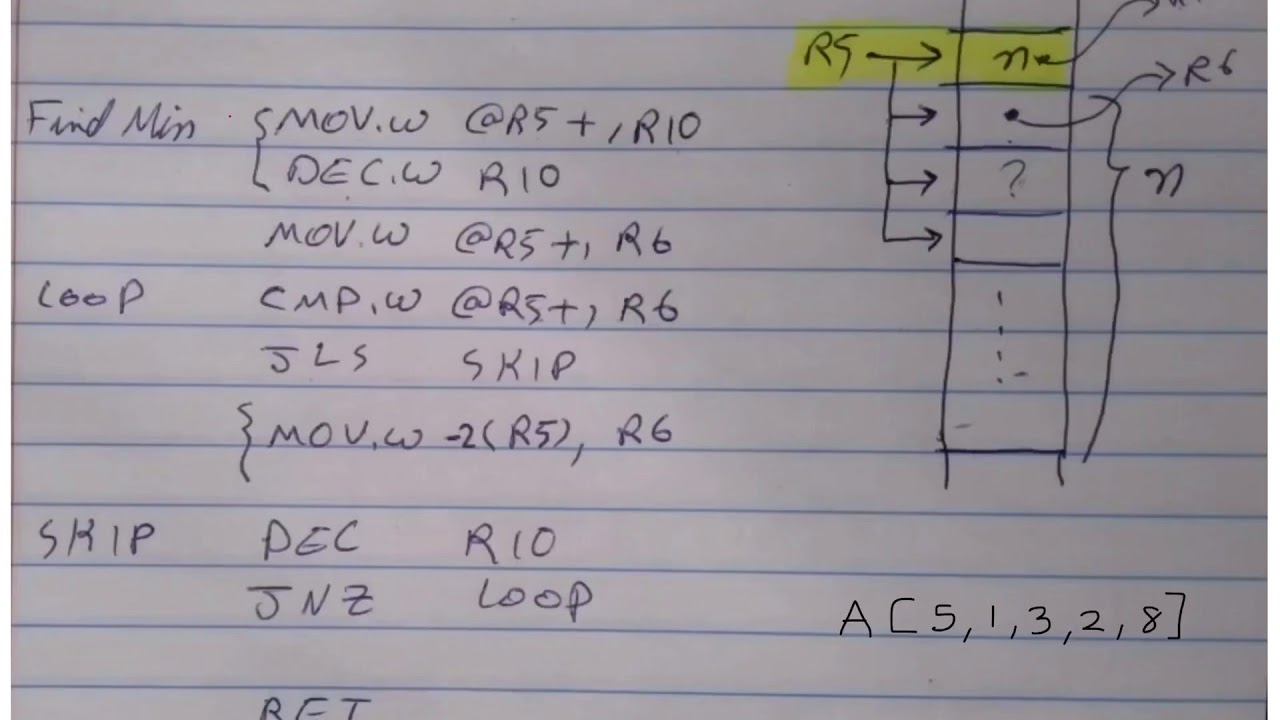 R5 n
R6
Find Min MOV.W @R5+, R10
DEC.W R10
? n
MOV.W @R5+, R6
LOOP CMP.W @R5+, R6
JLS SKIP
MOV.W -2(R5), R6
SKIP DEC R10
JNZ LOOP
A[5,1,3,2,8]
RET